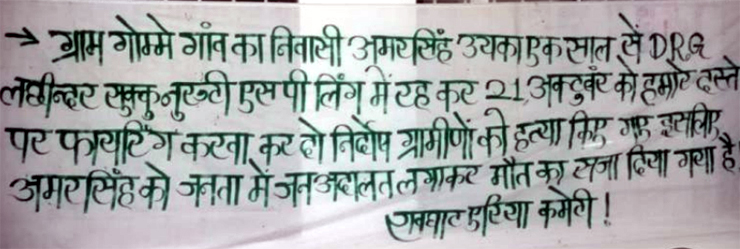 → ग्राम गोम्मे गांव का निवासी अमरसिंह उयका एक साल से DRG
लछीन्दर सुक्कु नुरुटी एस पी लिंग में रह कर 21 अक्टुबंर को हमारे दस्ते
पर फायरिंग करवा कर दो निर्दोष ग्रामीणों की हत्या किए गए इसलिए
अमरसिंह को जनता में जन अदालत लगाकर मौत का सजा दिया गया है
एरिया कमेटी !